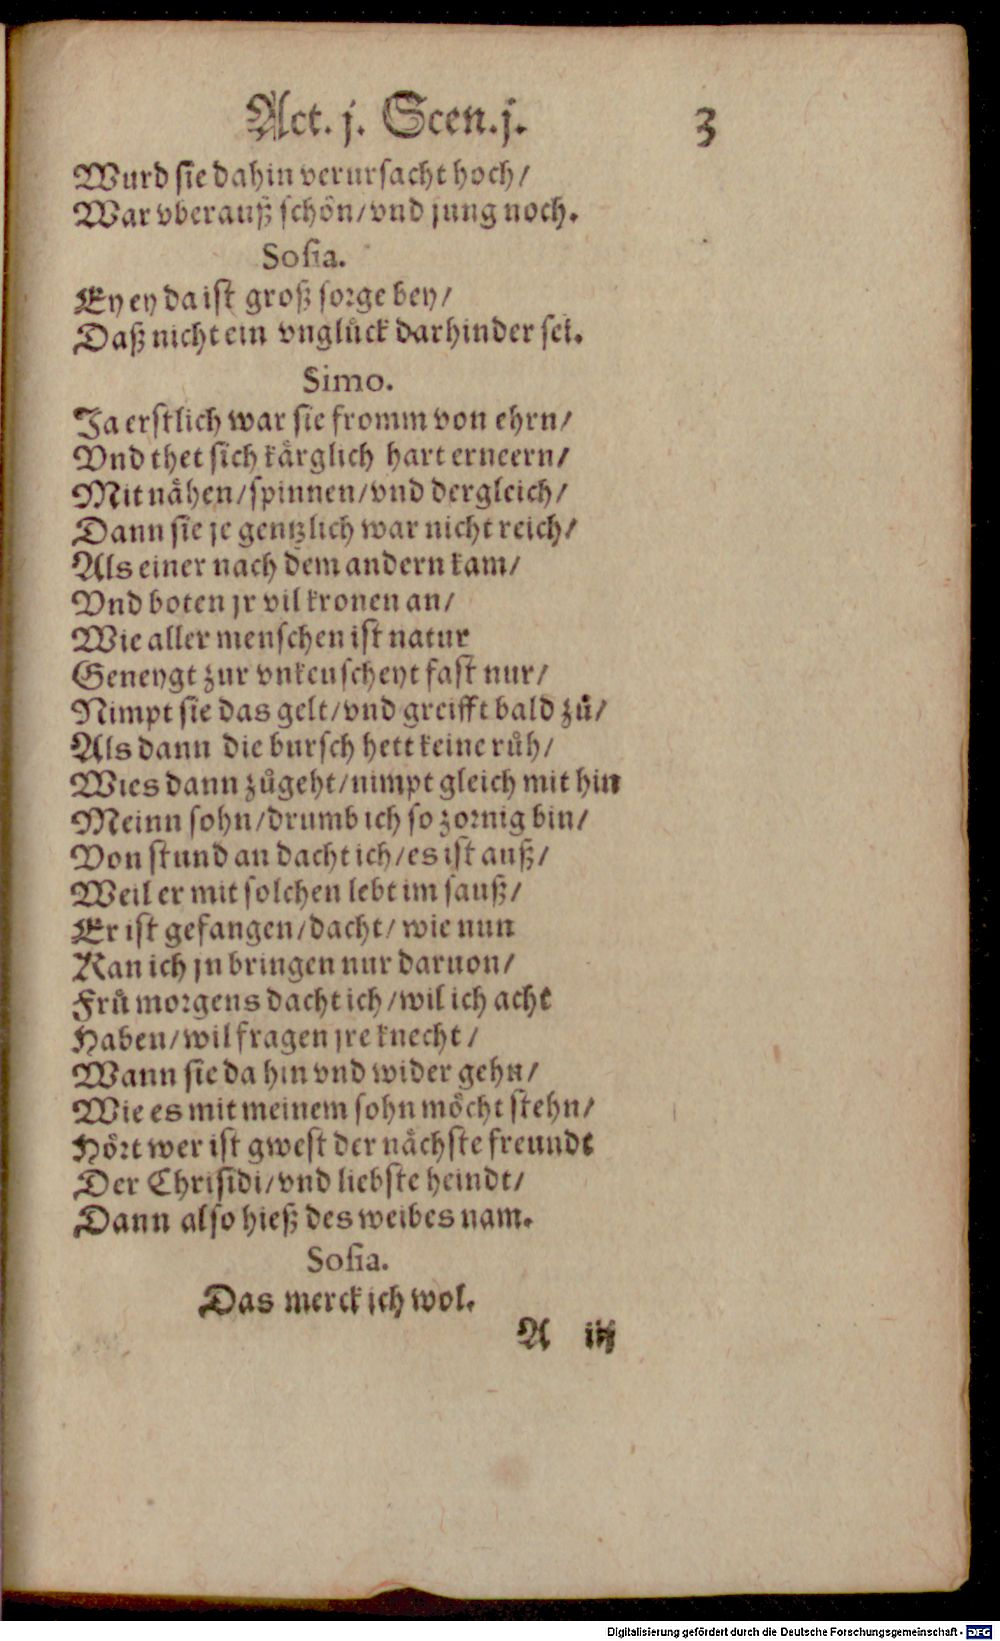 Act. j. Scen. j. 3
Wurd sie dahin verursacht hoch/
War vberauß schön/vnd jung noch.
Sosia.
Ey ey da ist groß sorge bey/
Daß nicht ein vnglück darhinder sei.
Simo.
Ja erstlich war sie fromm von ehrn/
Vnd thet sich kärglich hart erneern/
Mit nähen/spinnen/vnd dergleich/
Dann sie je gentzlich war nicht reich/
Als einer nach dem andern kam/
Vnd boten jr vil kronen an/
Wie aller menschen ist natur
Geneygt zur vnkeuscheyt fast nur/
Nimpt sie das gelt/vnd greifft bald zů/
Als dann die bursch hett keine růh/
Wies dann zůgeht/nimpt gleich mit hin
Meinn sohn/drumb ich so zornig bin/
Von stund an dacht ich/es ist auß/
Weil er mit solchen lebt im sauß/
Er ist gefangen/dacht/wie nun
Kan ich jn bringen nur daruon/
Frü morgens dacht ich/wil ich acht
Haben/wil fragen jre knecht/
Wann sie da hin vnd wider gehn/
Wie es mit meinem sohn möcht stehn/
Hört wer ist gwest der nächste freundt
Der Chrisidi/vnd liebste heindt/
Dann also hieß des weibes nam.
Sosia.
Das merck ich wol.
A iij
Digitalisierung gefördert durch die Deutsche Forschungsgemeinschaft - DFG